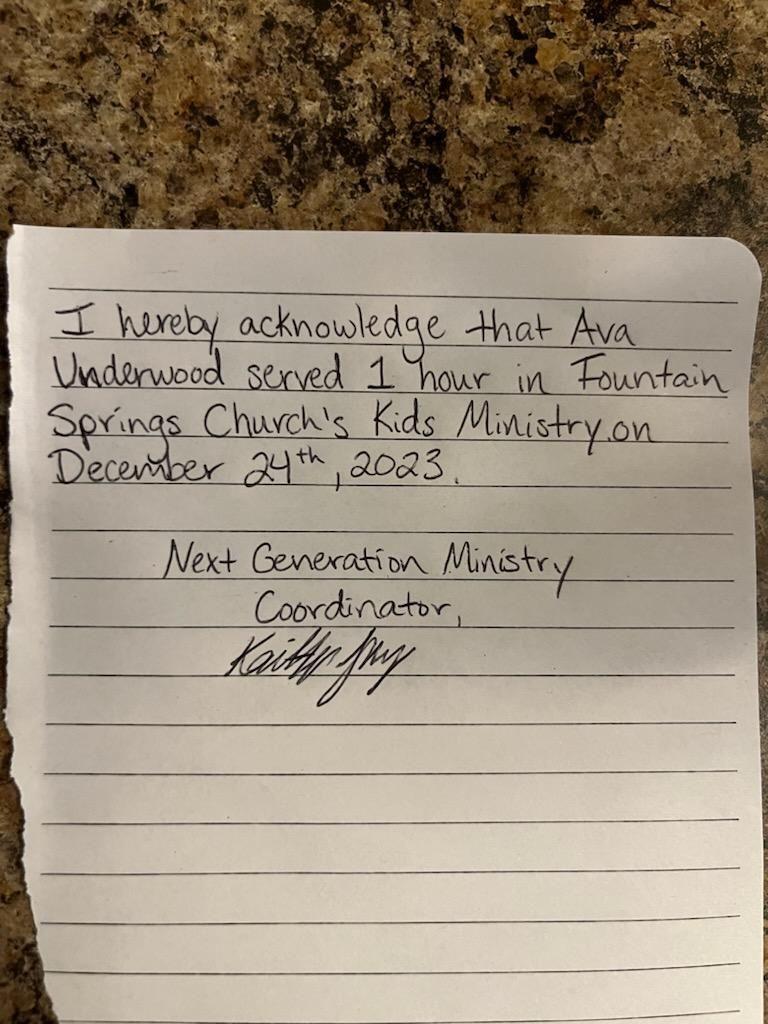 I hereby acknowledge that Ava
Underwood served 1 hour in Fountain
Springs Church's Kids Ministry on
December 24th, 2023.
Next Generation Ministry
Coordinator,